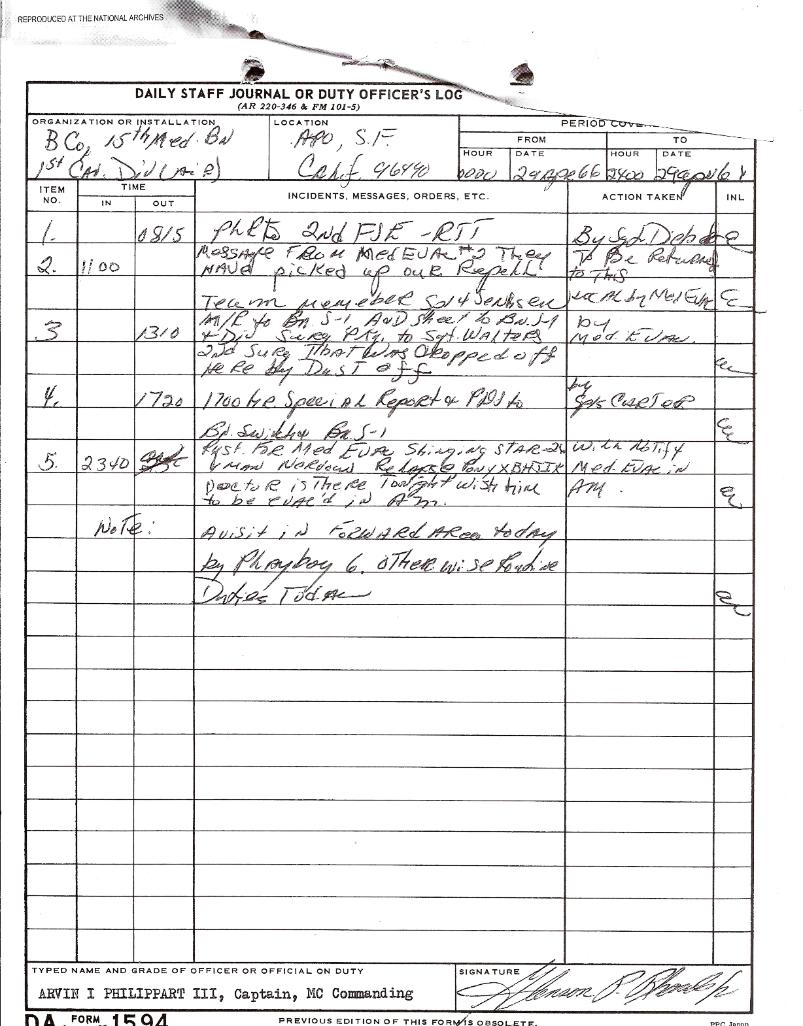 REPRODUCED AT THE NATIONAL ARCHIVES
DAILY STAFF JOURNAL OR DUTY OFFICER'S LOG
(AR 220-346 & FM 101-5)
ORGANIZATION OR INSTALLATION
B Co, 15th Med. Bn
1st Cav. Div (Air)
LOCATION
APO, S.F.
Calif. 96490
PERIOD
FROM
TO
HOUR DATE HOUR DATE
0000 29 Apr 66 2400
ITEM NO.
TIME
IN OUT
INCIDENTS, MESSAGES, ORDERS, ETC.
ACTION TAKEN
INL
1. 0815 2nd FSE - RTT By Sgt
2. 1100 Message From MedEVAC #2 They To Be Returned
HAVE picked up our Repell to This
Team memeber Sp/4 by Med EVAC
3 1310 M/R to Bn S-1 And sheet to Bn. S-1 by
& Div Surg Pkg. to Sgt. Walters Med. EVAC.
2nd Surg That was Dropped off
Here by Dust off
4. 1720 1700 Hr. Special Report & to by
Bn. Bn S-1 CARTER
5. 2340 For Med EVAC STAR-26 With Notify
1 MAN Pony Med. EVAC in
Doctor is There Tonight wish him AM.
to be evac'd in Am.
Note: A visit in Forward Area today
by Playboy 6. otherwise Routine
Duties Today
TYPED NAME AND GRADE OF OFFICER OR OFFICIAL ON DUTY
ARVIN I PHILIPPART III, Captain, MC Commanding
SIGNATURE
DA FORM 1594
PREVIOUS EDITION OF THIS FORM IS OBSOLETE.
PPC Japan